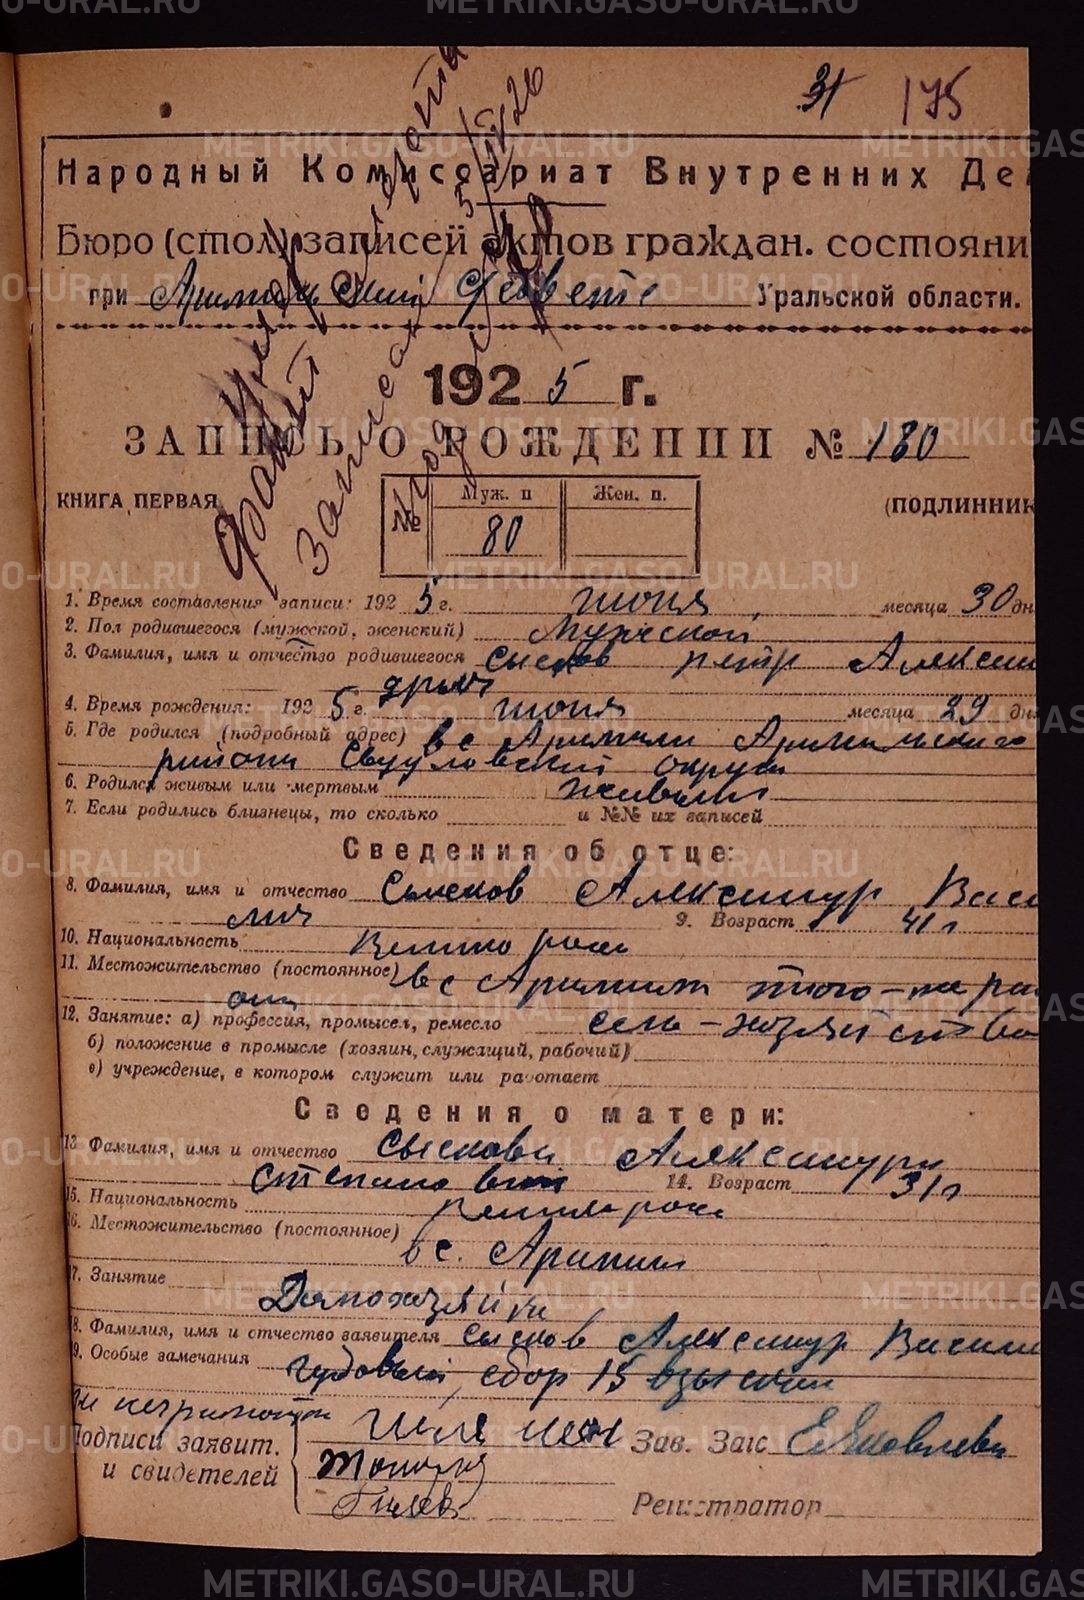 31 175
Народный Комиссариат Внутренних Де
Бюро (стол) записей актов граждан. состояни
при Арамильский Совете Уральской области.
1925 г.
ЗАПИСЬ О РОЖДЕНИИ № 180
КНИГА ПЕРВАЯ (ПОДЛИННИК
№ Муж. п Жен. п.
80
1. Время составления записи: 1925 г. июня месяца 30 дн
2. Пол родившегося (мужской, женский) Мужской
3. Фамилия, имя и отчество родившегося Сысков Петр Алексан
дрович
4. Время рождения: 1925 г. июня месяца 29 дня
5. Где родился (подробный адрес) в с Арамили Арамильского
района Свердловский округа
6. Родился живым или мертвым живым
7. Если родились близнецы, то сколько и №№ их записей
Сведения об отце:
8. Фамилия, имя и отчество Сысков Александр Васи
лич 9. Возраст 41 г
10. Национальность Велико росс
11. Местожительство (постоянное) в с Арамиль того-же рай
она
12. Занятие: а) профессия, промысел, ремесло сель-хозяйство
б) положение в промысле (хозяин, служащий, рабочий)
в) учреждение, в котором служит или работает
Сведения о матери:
13 Фамилия, имя и отчество Сыскова Александра
Степановна 14. Возраст 31 г
15. Национальность Великоросс
16. Местожительство (постоянное)
в с. Арамиль
17. Занятие Домохозяйка
18. Фамилия, имя и отчество заявителя Сысков Александр Васили
19. Особые замечания сбор 15 взыскан
Подписи заявит.
и свидетелей
Зав. Загс Е Яковлева
Регистратор
METRIKI.GASO-URAL.RU